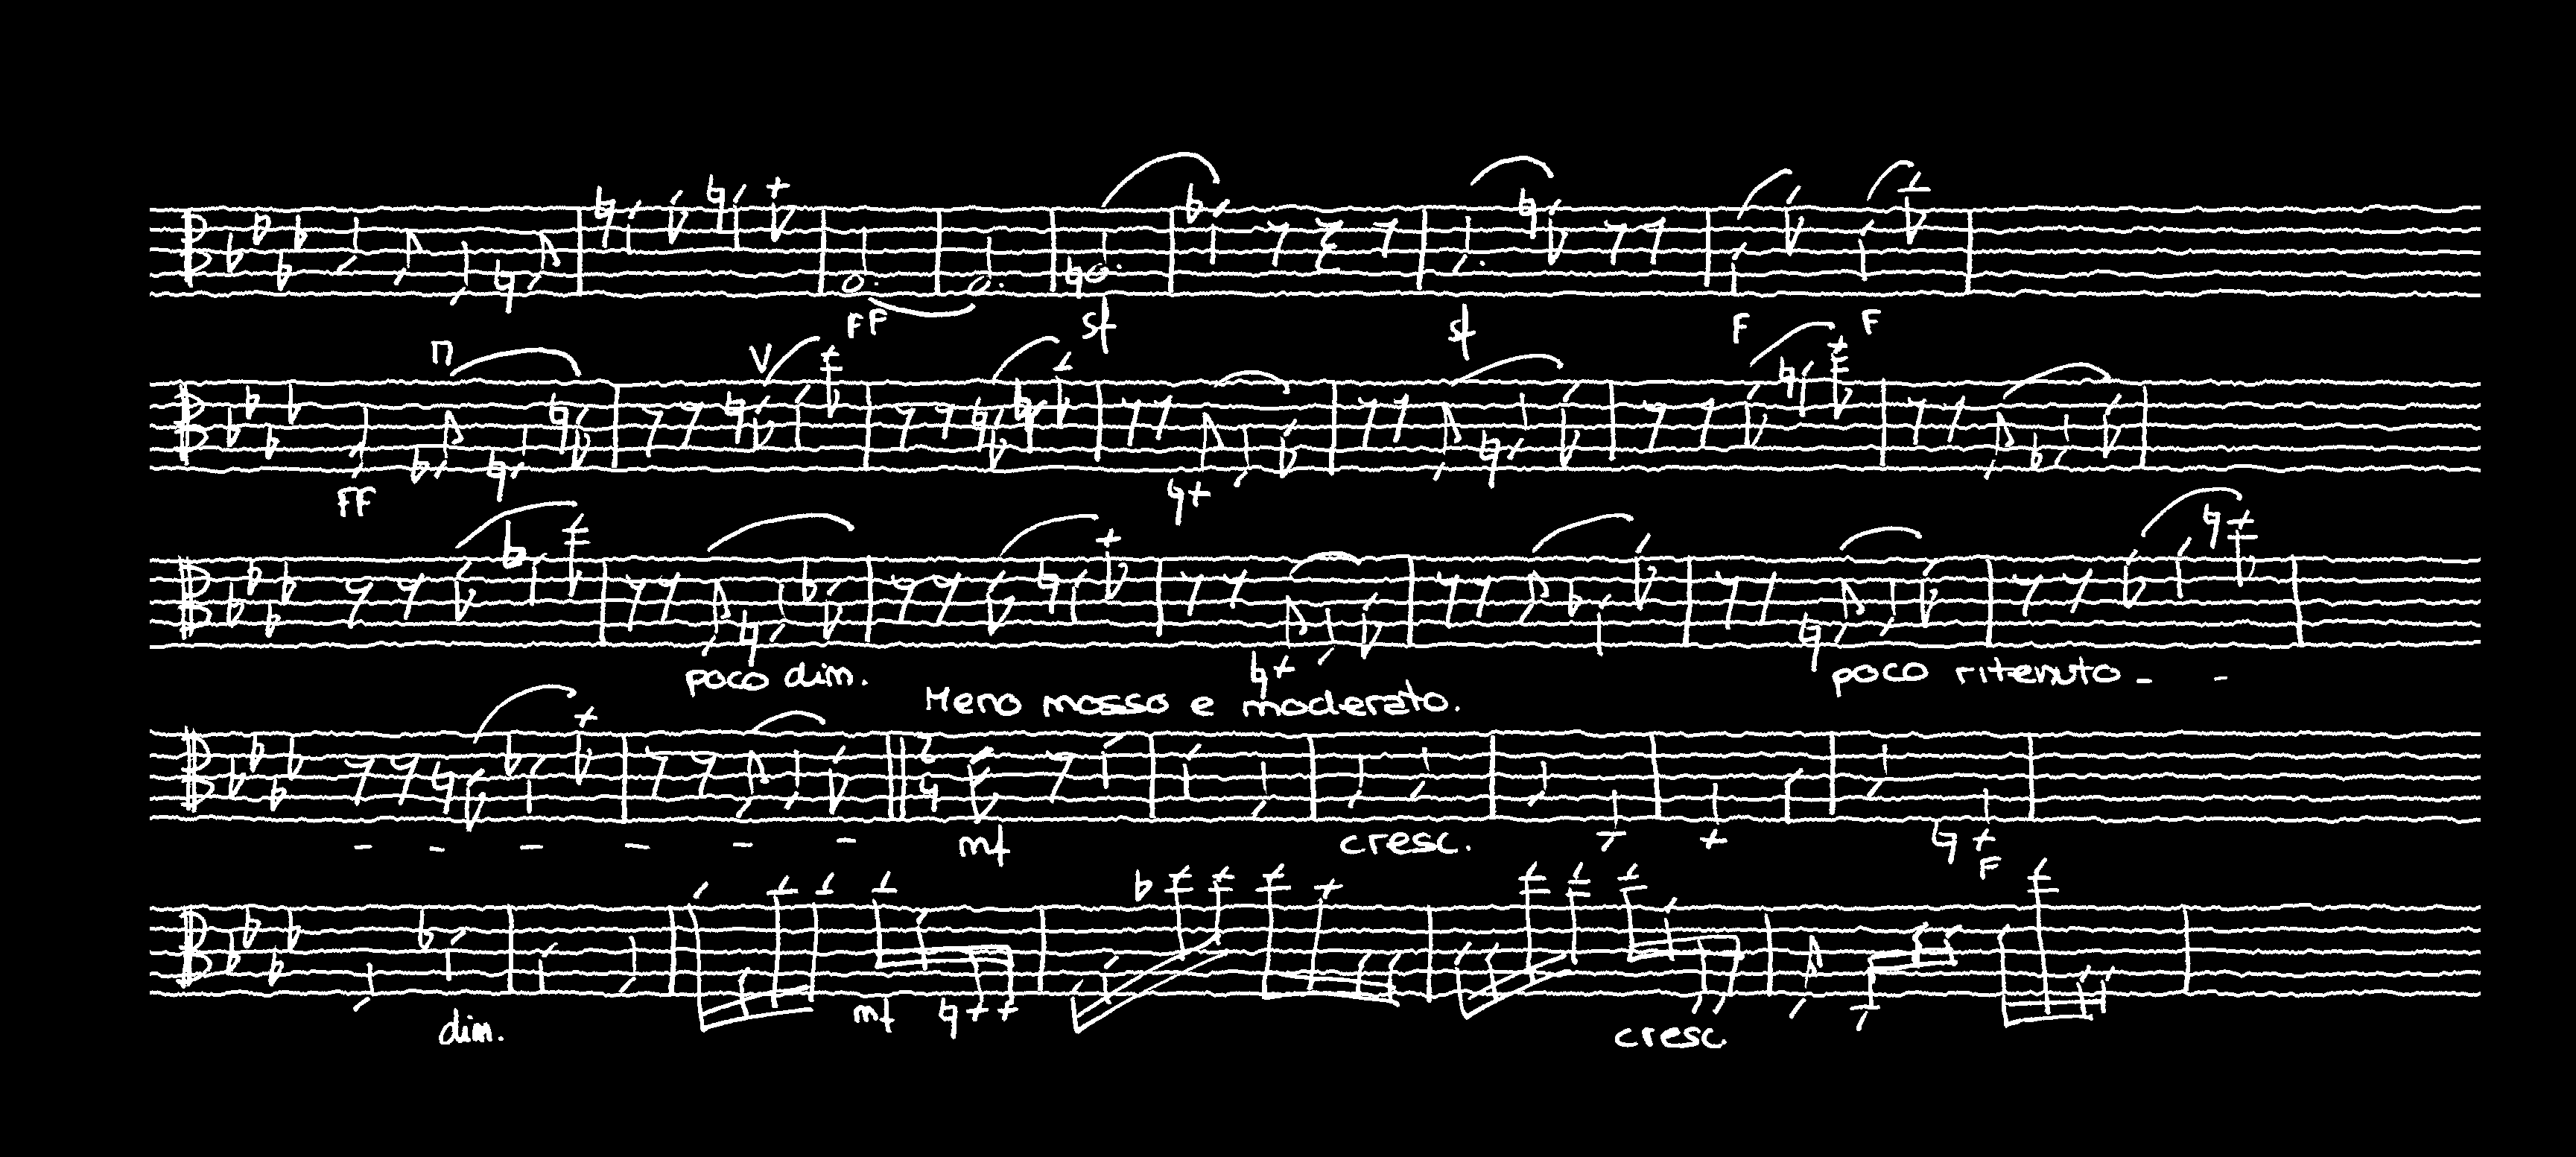 FF sf sf F F
FF
poco dim. poco ritenuto - -
Meno mosso e moderato.
- - - - - - mf cresc. F
dim. mf cresc